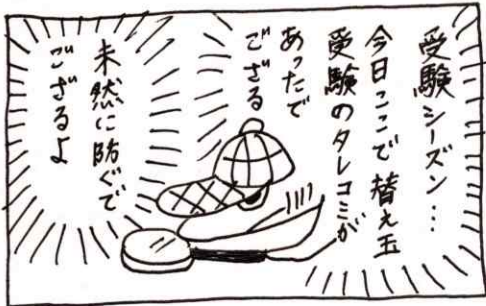 受験シーズン…
今日ここで替え玉
受験のタレコミが
あったで
ござる
未然に防ぐで
ござるよ